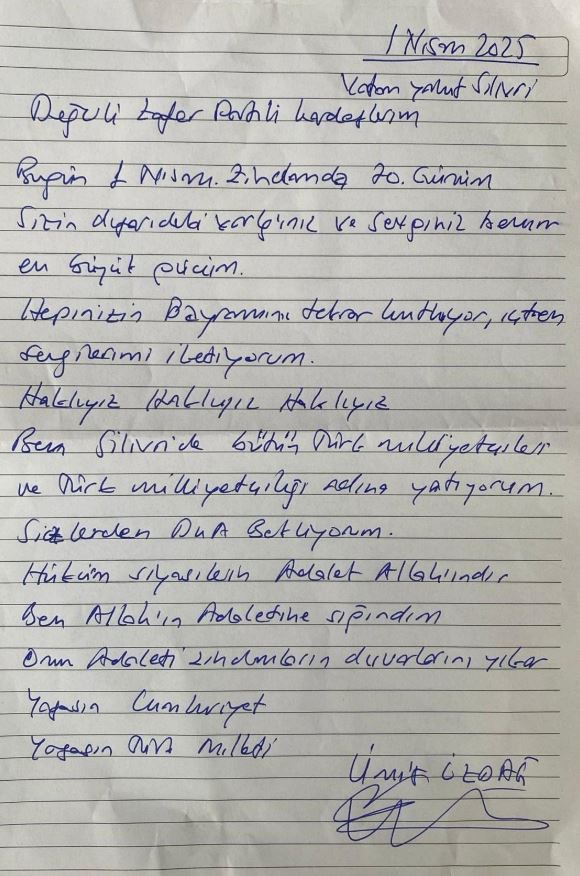 1 Nisan 2025
Vatan yahut Silivri
Değerli Zafer Partili kardeşlerim
Bugün 1 Nisan. Zindanda 70. Günüm
Sizin dışarıdaki varlığınız ve sevginiz benim
en büyük gücüm.
Hepinizin Bayramını tekrar kutluyor, içten
sevgilerimi iletiyorum.
Haklıyız Haklıyız Haklıyız
Ben Silivri'de bütün Türk milliyetçileri
ve Türk milliyetçiliği adına yatıyorum.
Sizlerden DUA Bekliyorum.
Hüküm siyasilerin Adalet Allahındır
Ben Allah'ın Adaletine sığındım
Onun Adaleti zindanların duvarlarını yıkar
Yaşasın Cumhuriyet
Yaşasın Türk Milleti
Ümit ÖZDAĞ